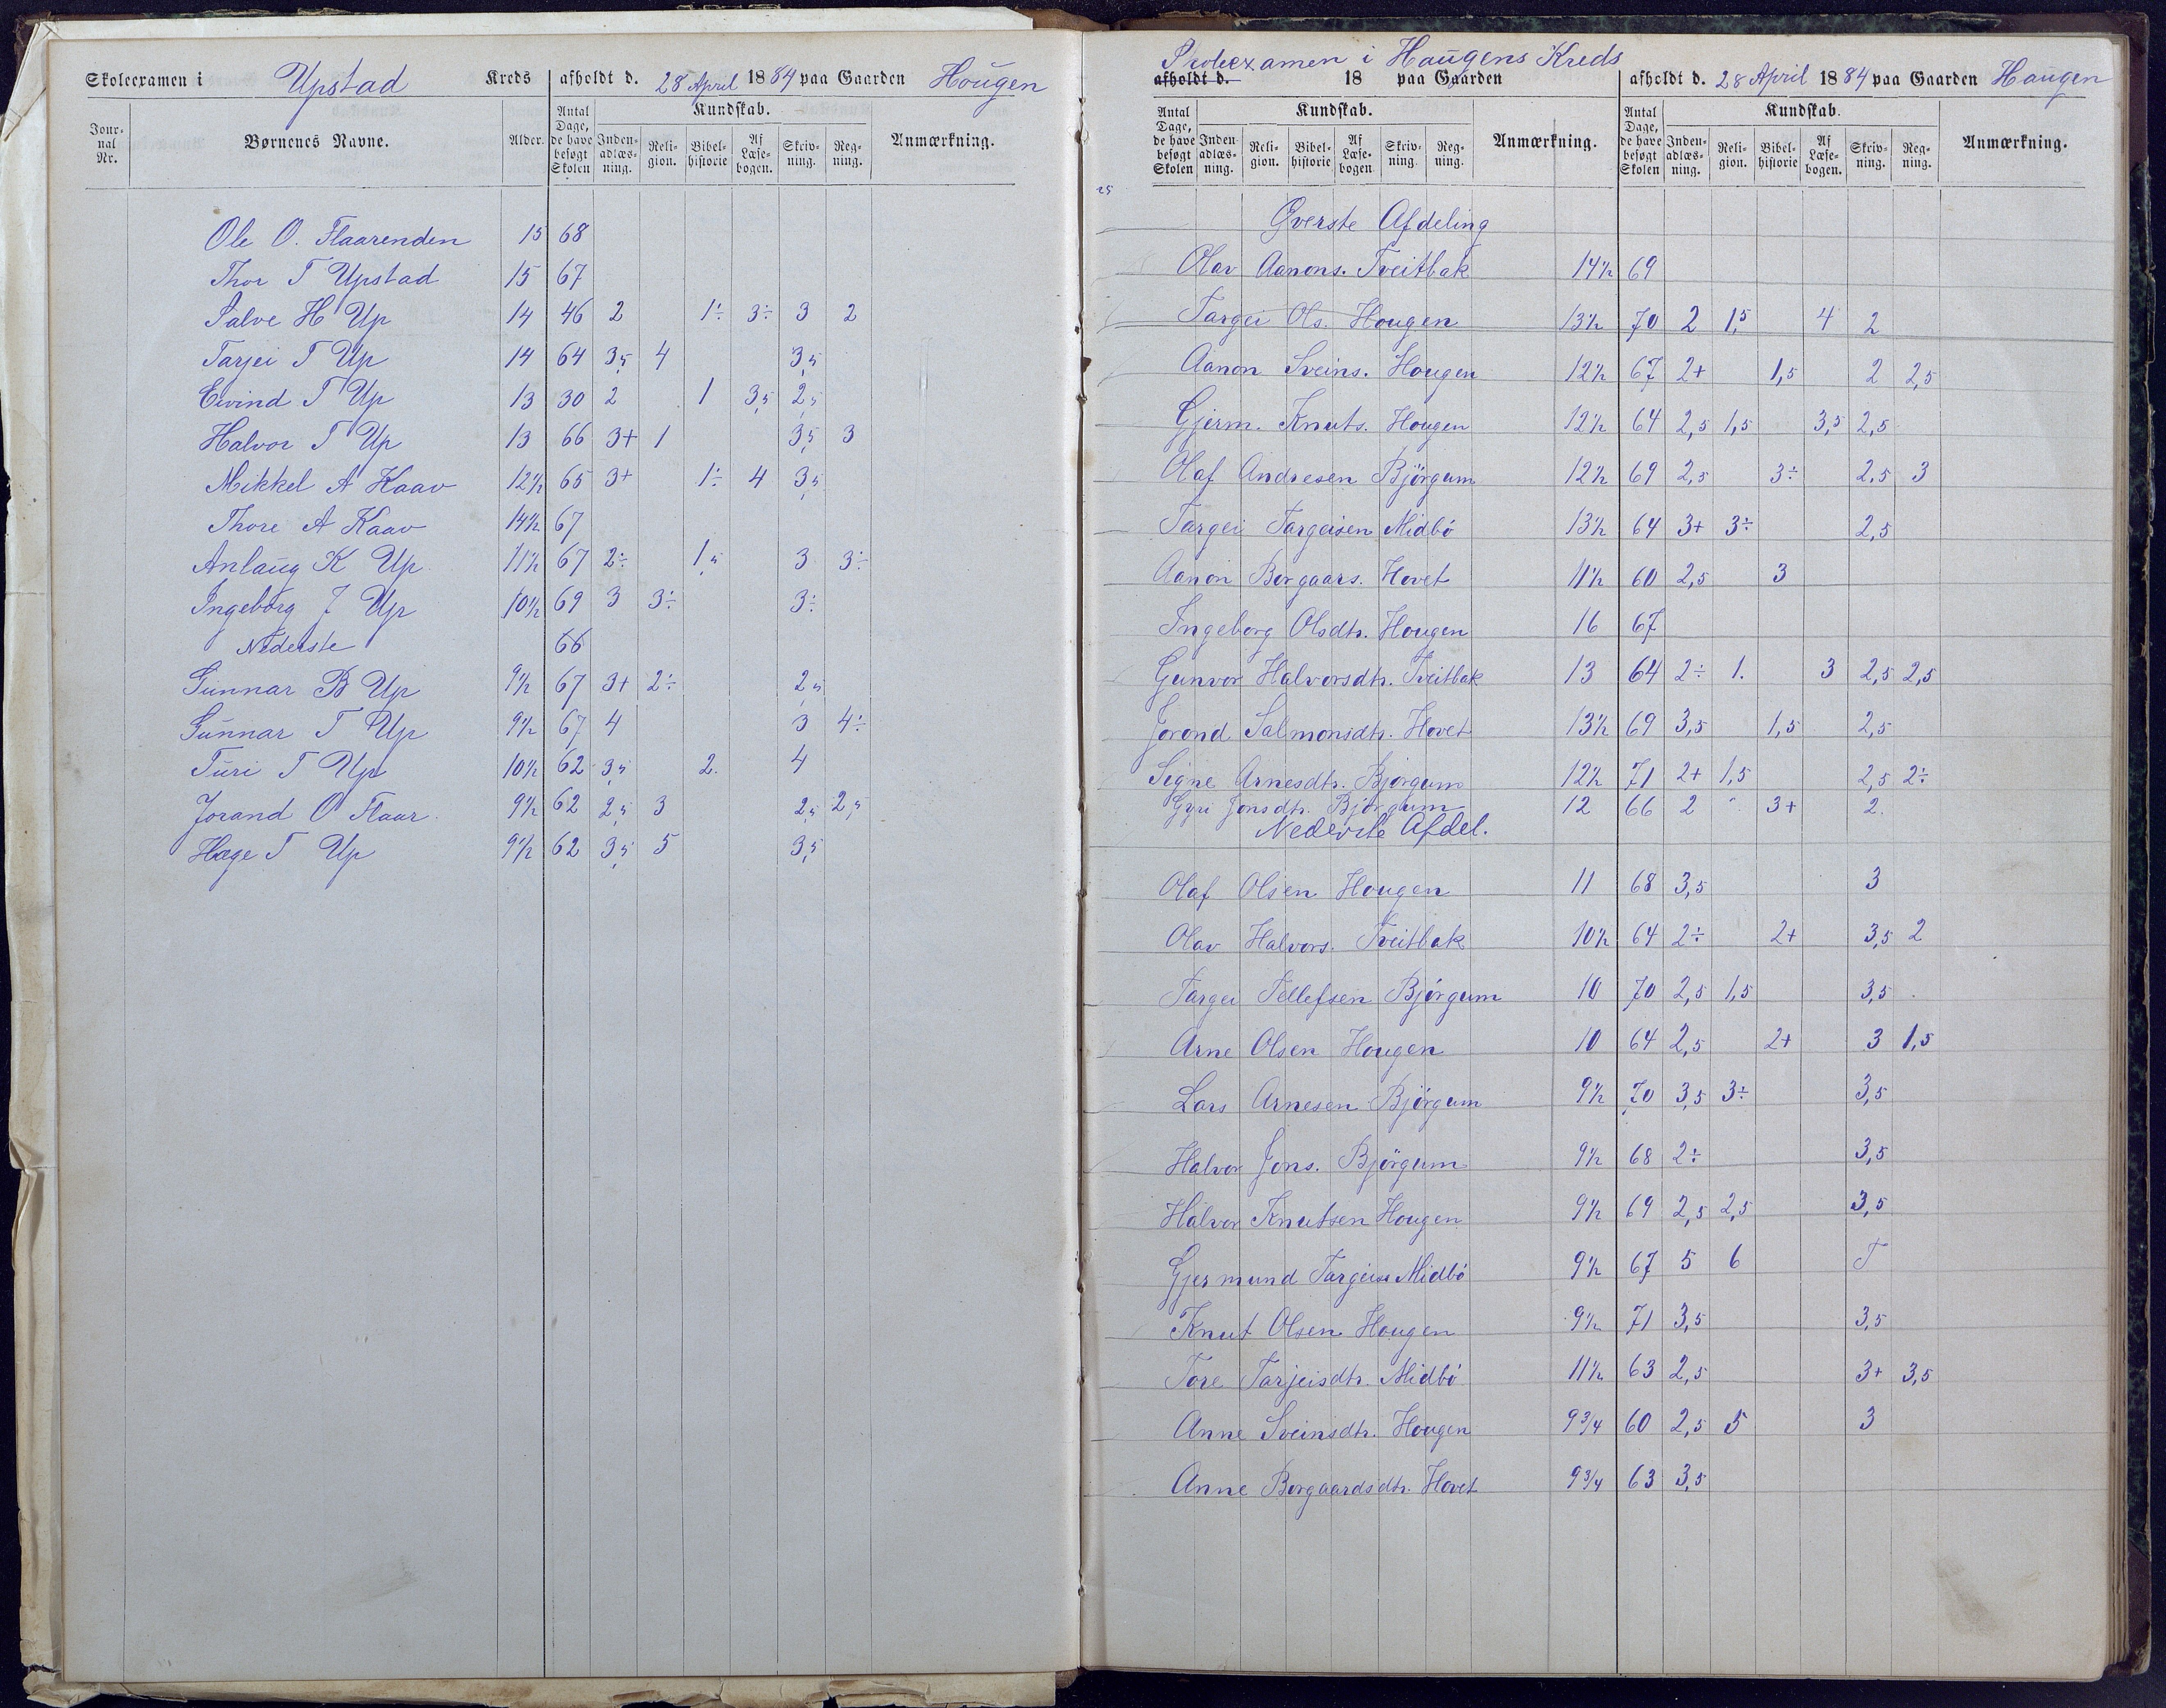 Skoleexamen i Upstad Kreds afholdt d. 28 April 1884 paa Gaarden Hougen
Jour-nal Nr. Børnenes Navne. Alder. Antal Dage, de have besøgt Skolen Kundskab. Inden-adlæs-ning. Reli-gion. Bibel-historie Af Læse-bogen. Skriv-ning. Reg-ning. Anmærkning.
Ole O. Flaarenden 15 68
Thor T Upstad 15 67
Salve H Up 14 46 2 1÷ 3÷ 3 2
Tarjei T Up 14 64 3,5 4 3,5
Eivind T Up 13 30 2 1 3,5 2,5
Halvor T Up 13 66 3+ 1 3,5 3
Mikkel A Kaav 12½ 65 3+ 1÷ 4 3,5
Thore A Kaav 14½ 67
Anlaug K Up 11½ 67 2÷ 1,5 3 3÷
Ingeborg J Up 10½ 69 3 3÷ 3÷
Nederste 66
Gunnar B Up 9½ 67 3+ 2÷ 2,5
Gunnar T Up 9½ 67 4 3 4÷
Turi T Up 10½ 62 3,5 2. 4
Jorand O Flaar. 9½ 62 2,5 3 2,5 2,5
Hæge T Up 9½ 62 3,5 5 3,5
Skoleexamen i Haugens Kreds
afholdt d. 18 paa Gaarden afholdt d. 28 April 1884 paa Gaarden Haugen
Antal Dage, de have besøgt Skolen Kundskab. Inden-adlæs-ning. Reli-gion. Bibel-historie Af Læse-bogen Skriv-ning. Reg-ning. Anmærkning. Antal Dage, de have besøgt Skolen Kundskab. Inden-adlæs-ning. Reli-gion. Bibel-historie Af Læse-bogen. Skriv-ning. Reg-ning. Anmærkning.
25
Øverste Afdeling
Olav Aanons. Tveitbak 14½ 69
Targei Ols. Hougen 13½ 70 2 1,5 4 2
Aanon Sveins. Hougen 12½ 67 2+ 1,5 2 2,5
Gjerm. Knuts. Hougen 12½ 64 2,5 1,5 3,5 2,5
Olaf Andresen Bjørgum 12½ 69 2,5 3÷ 2,5 3
Targei Targeisen Midbö 13½ 64 3+ 3÷ 2,5
Aanon Borgaars. Hovet 11½ 60 2,5 3
Ingeborg Olsdtr. Hougen 16 67
Gunvor Halvorsdtr. Tveitbak 13 64 2÷ 1. 3 2,5 2,5
Jorond Salmonsdtr. Hovet 13½ 69 3,5 1,5 2,5
Signe Arnesdtr. Bjørgum 12½ 71 2+ 1,5 2,5 2÷
Gyri Jonsdtr. Bjørgum 12 66 2 3+ 2.
Nederste Afdel.
Olaf Olsen Hougen 11 68 3,5 3
Olav Halvors. Tveitbak 10½ 64 2÷ 2+ 3,5 2
Targei Tellefsen Bjørgum 10 70 2,5 1,5 3,5
Arne Olsen Hougen 10 64 2,5 2+ 3 1,5
Lars Arnesen Bjørgum 9½ 70 3,5 3÷ 3,5
Halvor Jons. Bjørgum 9½ 68 2÷ 3,5
Halvor Knutsen Hougen 9½ 69 2,5 2,5 3,5
Gjermund Targeis Midbö 9½ 67 5 6 T
Knut Olsen Hougen 9½ 71 3,5 3,5
Tore Tarjeisdtr. Midbö 11½ 63 2,5 3+ 3,5
Anne Sveinsdtr. Hougen 9¾ 60 2,5 5 3
Anne Borgaardsdtr. Hovet 9¾ 63 3,5